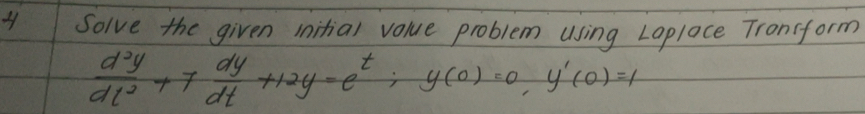 4 Solve the given initial value problem using Laplace Transform
d²y/dt² + 7 dy/dt + 12y = e^t ; y(0) = 0, y'(0) = 1